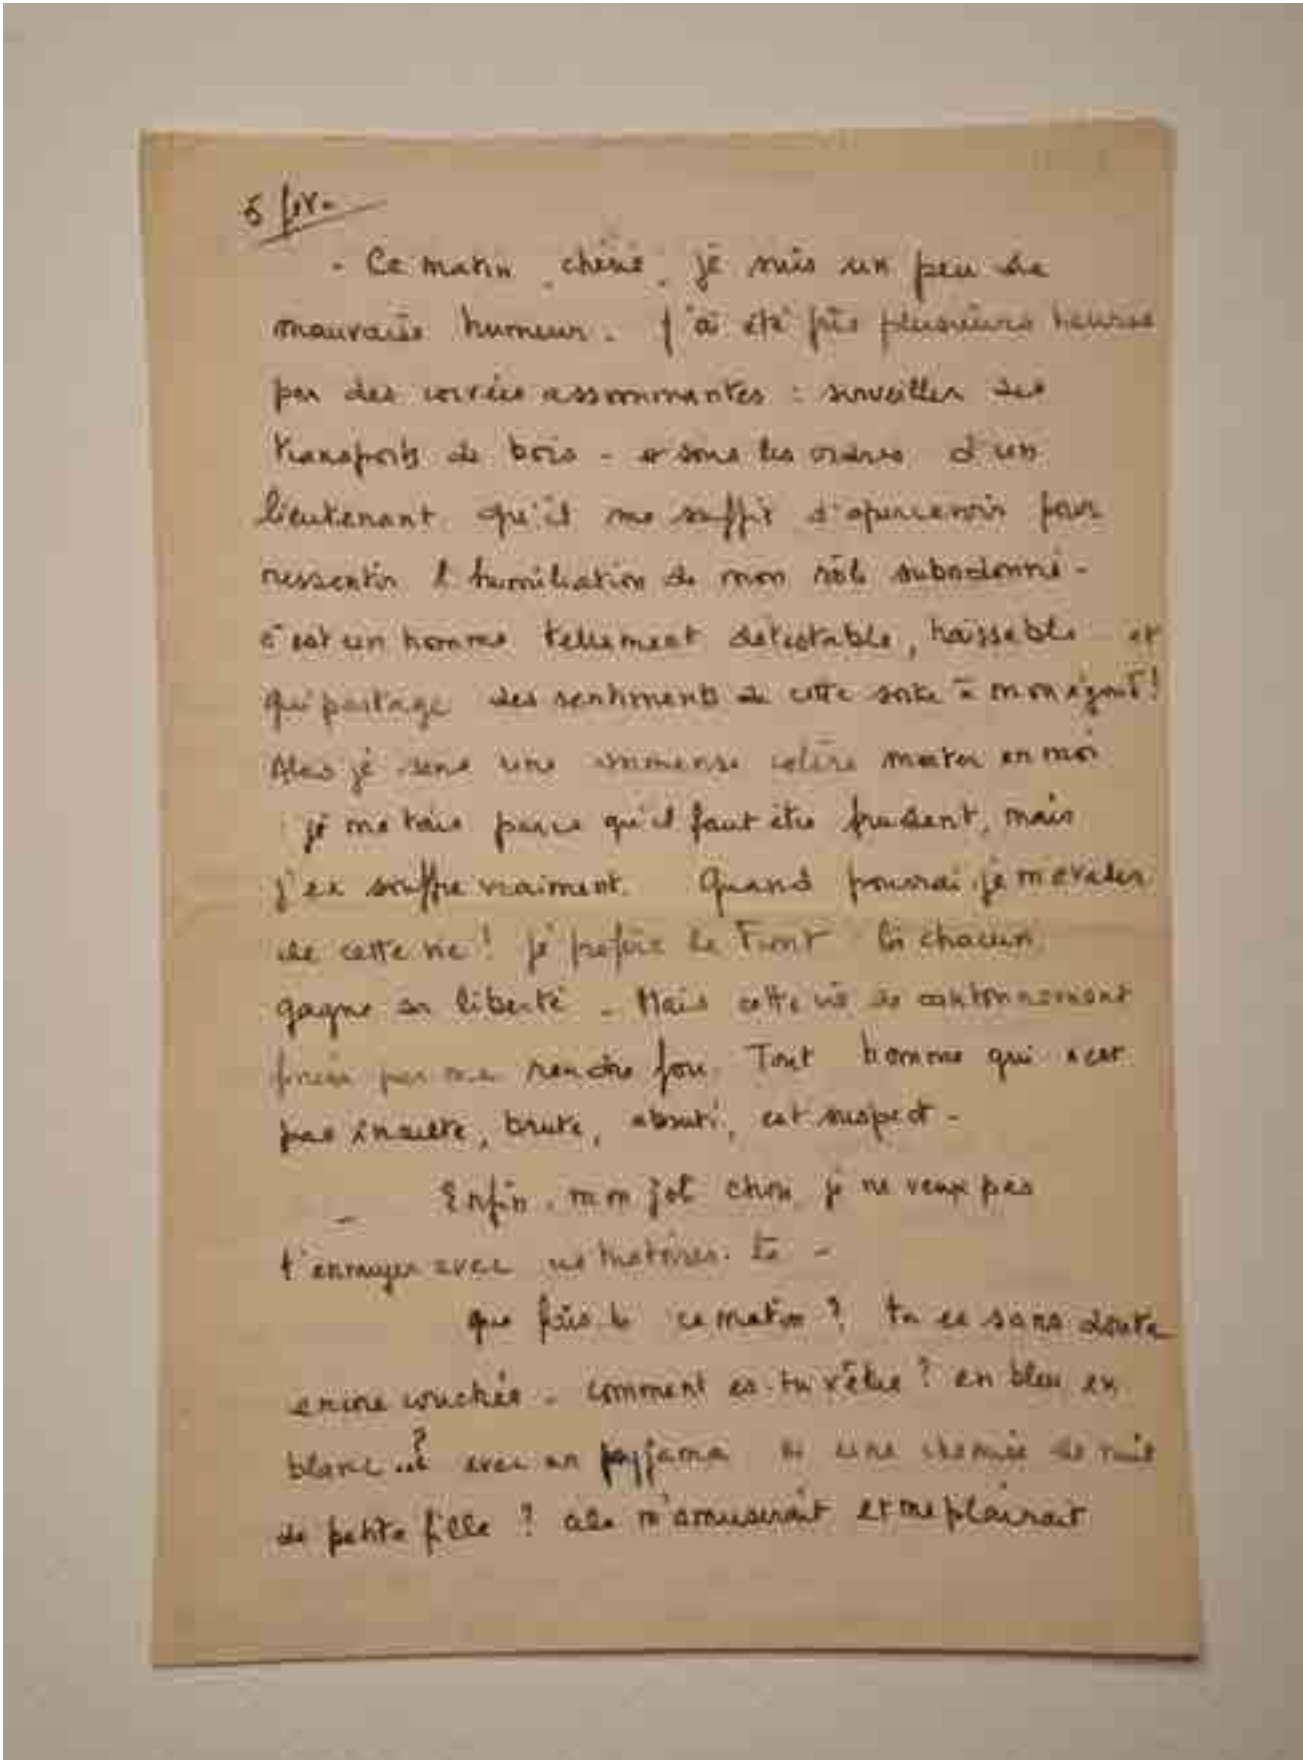 5 fev.
- Ce matin, chérie, je suis un peu de
mauvaise humeur. J'ai été pris plusieurs heures
par des corvées assommantes : surveiller des
transports de bois - et sous les ordres d'un
lieutenant qu'il me suffit d'apercevoir pour
ressentir l'humiliation de mon rôle subordonné -
c'est un homme tellement detestable, haïssable et
qui partage des sentiments de cette sorte à mon égard !
Alors je sens une immense colère monter en moi
je me tais parce qu'il faut être prudent, mais
j'en souffre vraiment. Quand pourrai-je m'évader
de cette vie ! je préfère le Front là chacun
gagne sa liberté - Mais cette vie de cantonnement
finira par me rendre fou. Tout homme qui n'est
pas inculte, brute, abruti, est suspect -
- Enfin, mon joli chou, je ne veux pas
t'ennuyer avec ces histoires. -
que fais-tu ce matin ? tu es sans doute
encore couchée - comment es-tu vêtue ? en bleu en
blanc ..? avec un pyjama ou une chemise de nuit
de petite fille ? cela m'amuserait et me plairait